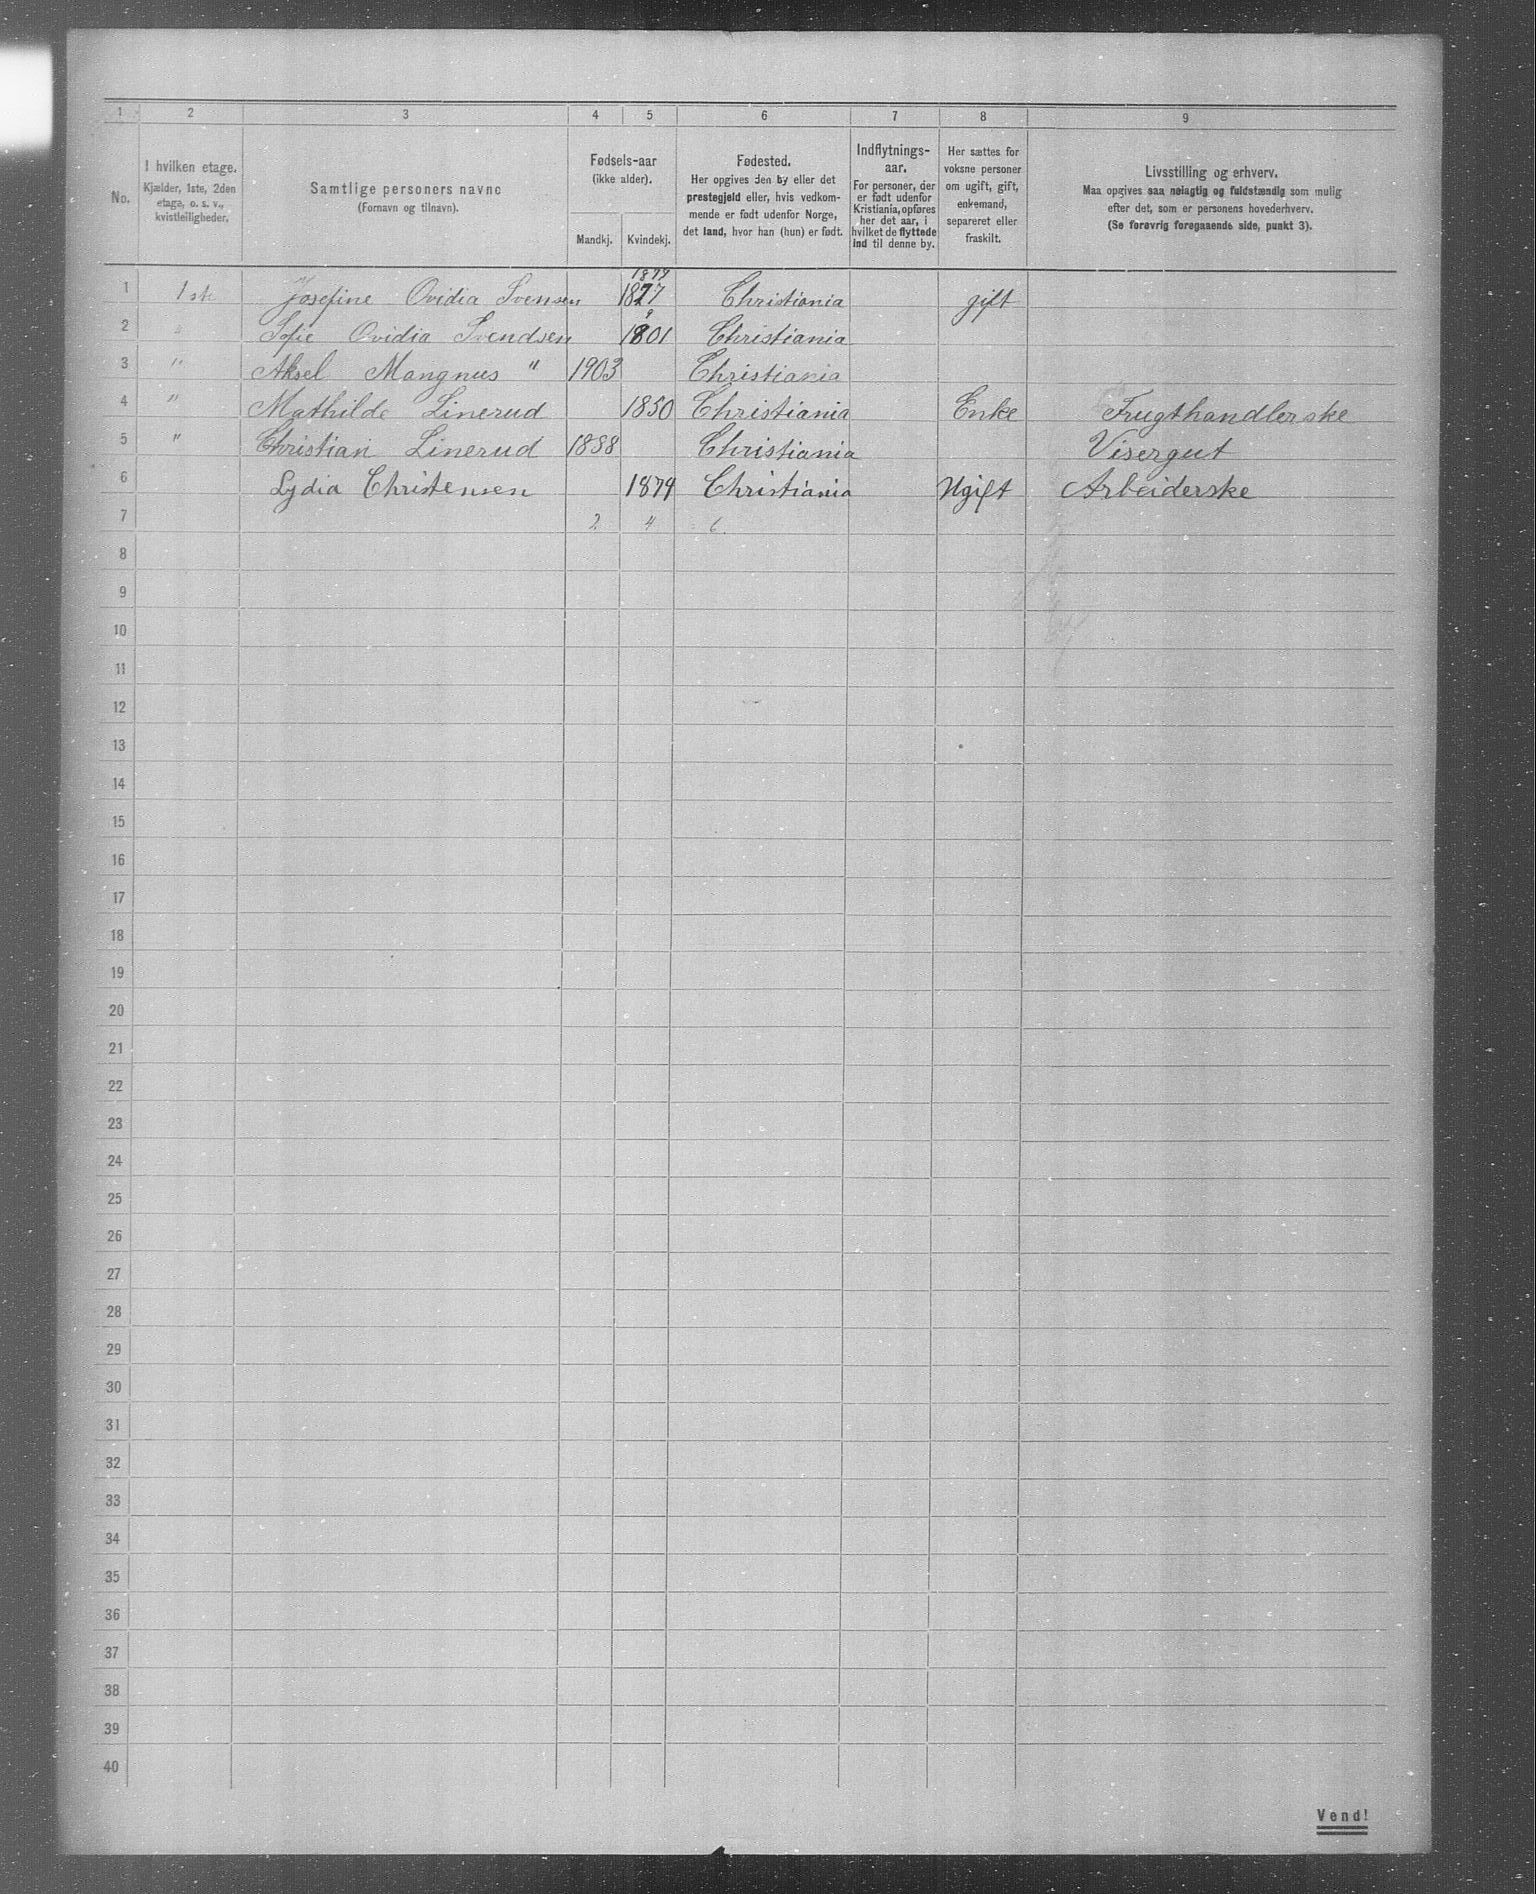 1 2 3 4 5 6 7 8 9
No.
I hvilken etage.
Kjælder, 1ste, 2den
etage, o. s. v.,
kvistleiligheder.
Samtlige personers navne
(Fornavn og tilnavn).
Fødsels-aar
(ikke alder).
Mandkj. Kvindekj.
Fødested.
Her opgives den by eller det
prestegjeld eller, hvis vedkom-
mende er født udenfor Norge,
det land, hvor han (hun) er født.
Indflytnings-
aar.
For personer, der
er født udenfor
Kristiania, opføres
her det aar, i
hvilket de flyttede
ind til denne by.
Her sættes for
voksne personer
om ugift, gift,
enkemand,
separeret eller
fraskilt.
Livsstilling og erhverv.
Maa opgives saa nøiagtig og fuldstændig som mulig
efter det, som er personens hovederhverv.
(Se forøvrig foregaaende side, punkt 3).
1877
1 1ste Josefine Ovidia Svensen 1877 Christiania gift
9
2 " Sofie Ovidia Svendsen 1801 Christiania
3 " Aksel Mangnus " 1903 Christiania
4 " Mathilde Linerud 1850 Christiania Enke Frugthandlerske
5 " Christian Linerud 1888 Christiania Visergut
6 Lydia Christensen 1879 Christiania Ugift Arbeiderske
7 2 4 6
8
9
10
11
12
13
14
15
16
17
18
19
20
21
22
23
24
25
26
27
28
29
30
31
32
33
34
35
36
37
38
39
40
Vend!